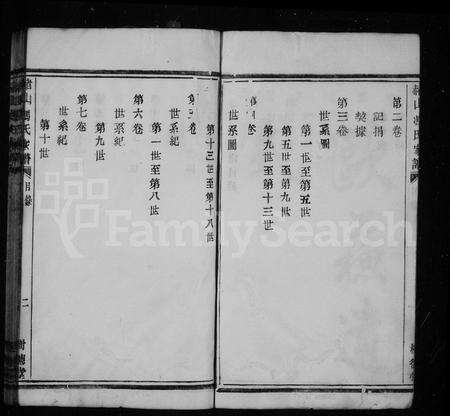 第二卷
記捐
契據
第三卷
世系圖
第一世至第五世
第五世至第九世
第九世至第十三世
卷
世系圖
第十三世至第十八世
第卷
世系紀
第一世至第八世
第六卷
世系紀
第九世
第七卷
世系紀
第十世
二
FamilySearch